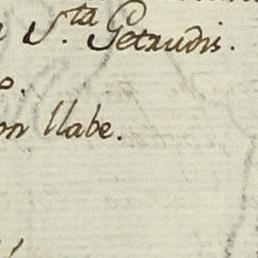 S.ta Getrudis.
o.
on llabe.